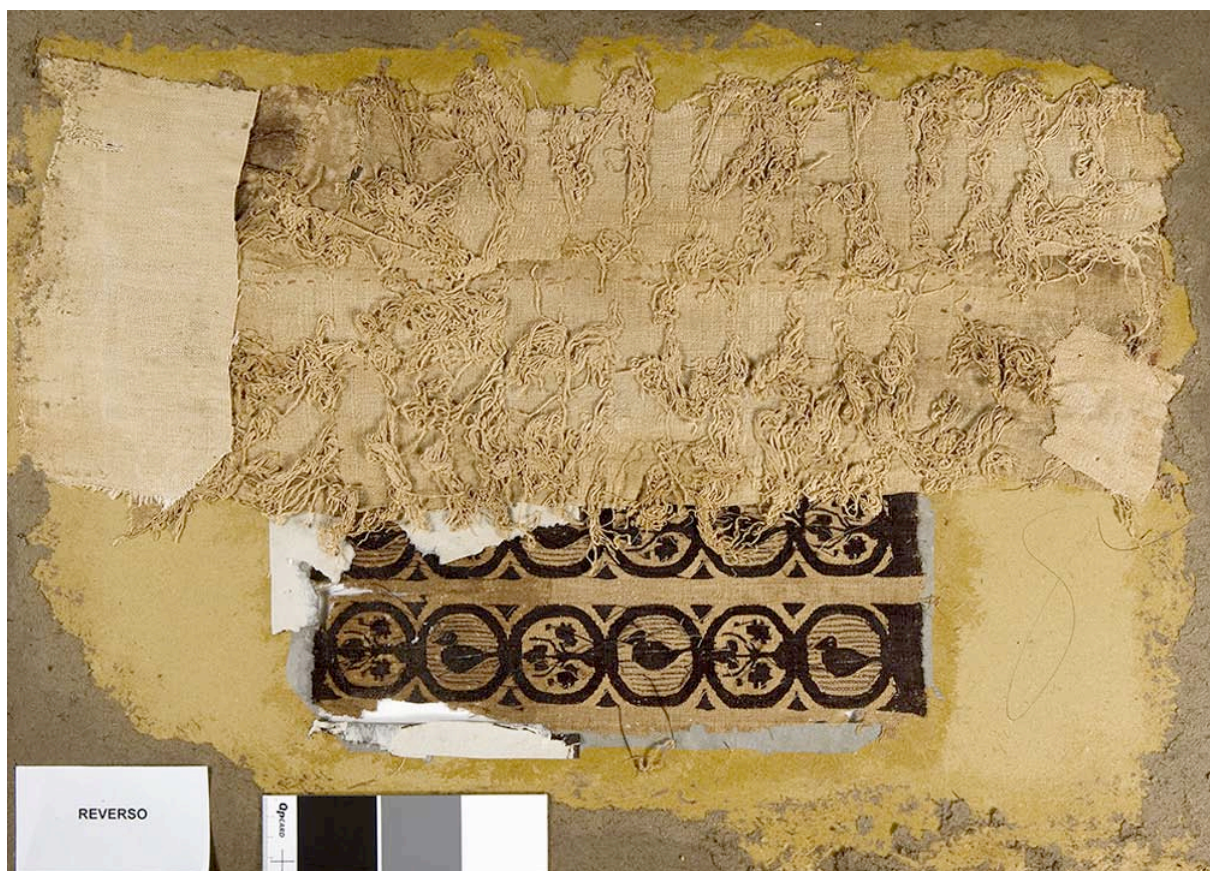 REVERSO
QPCARD